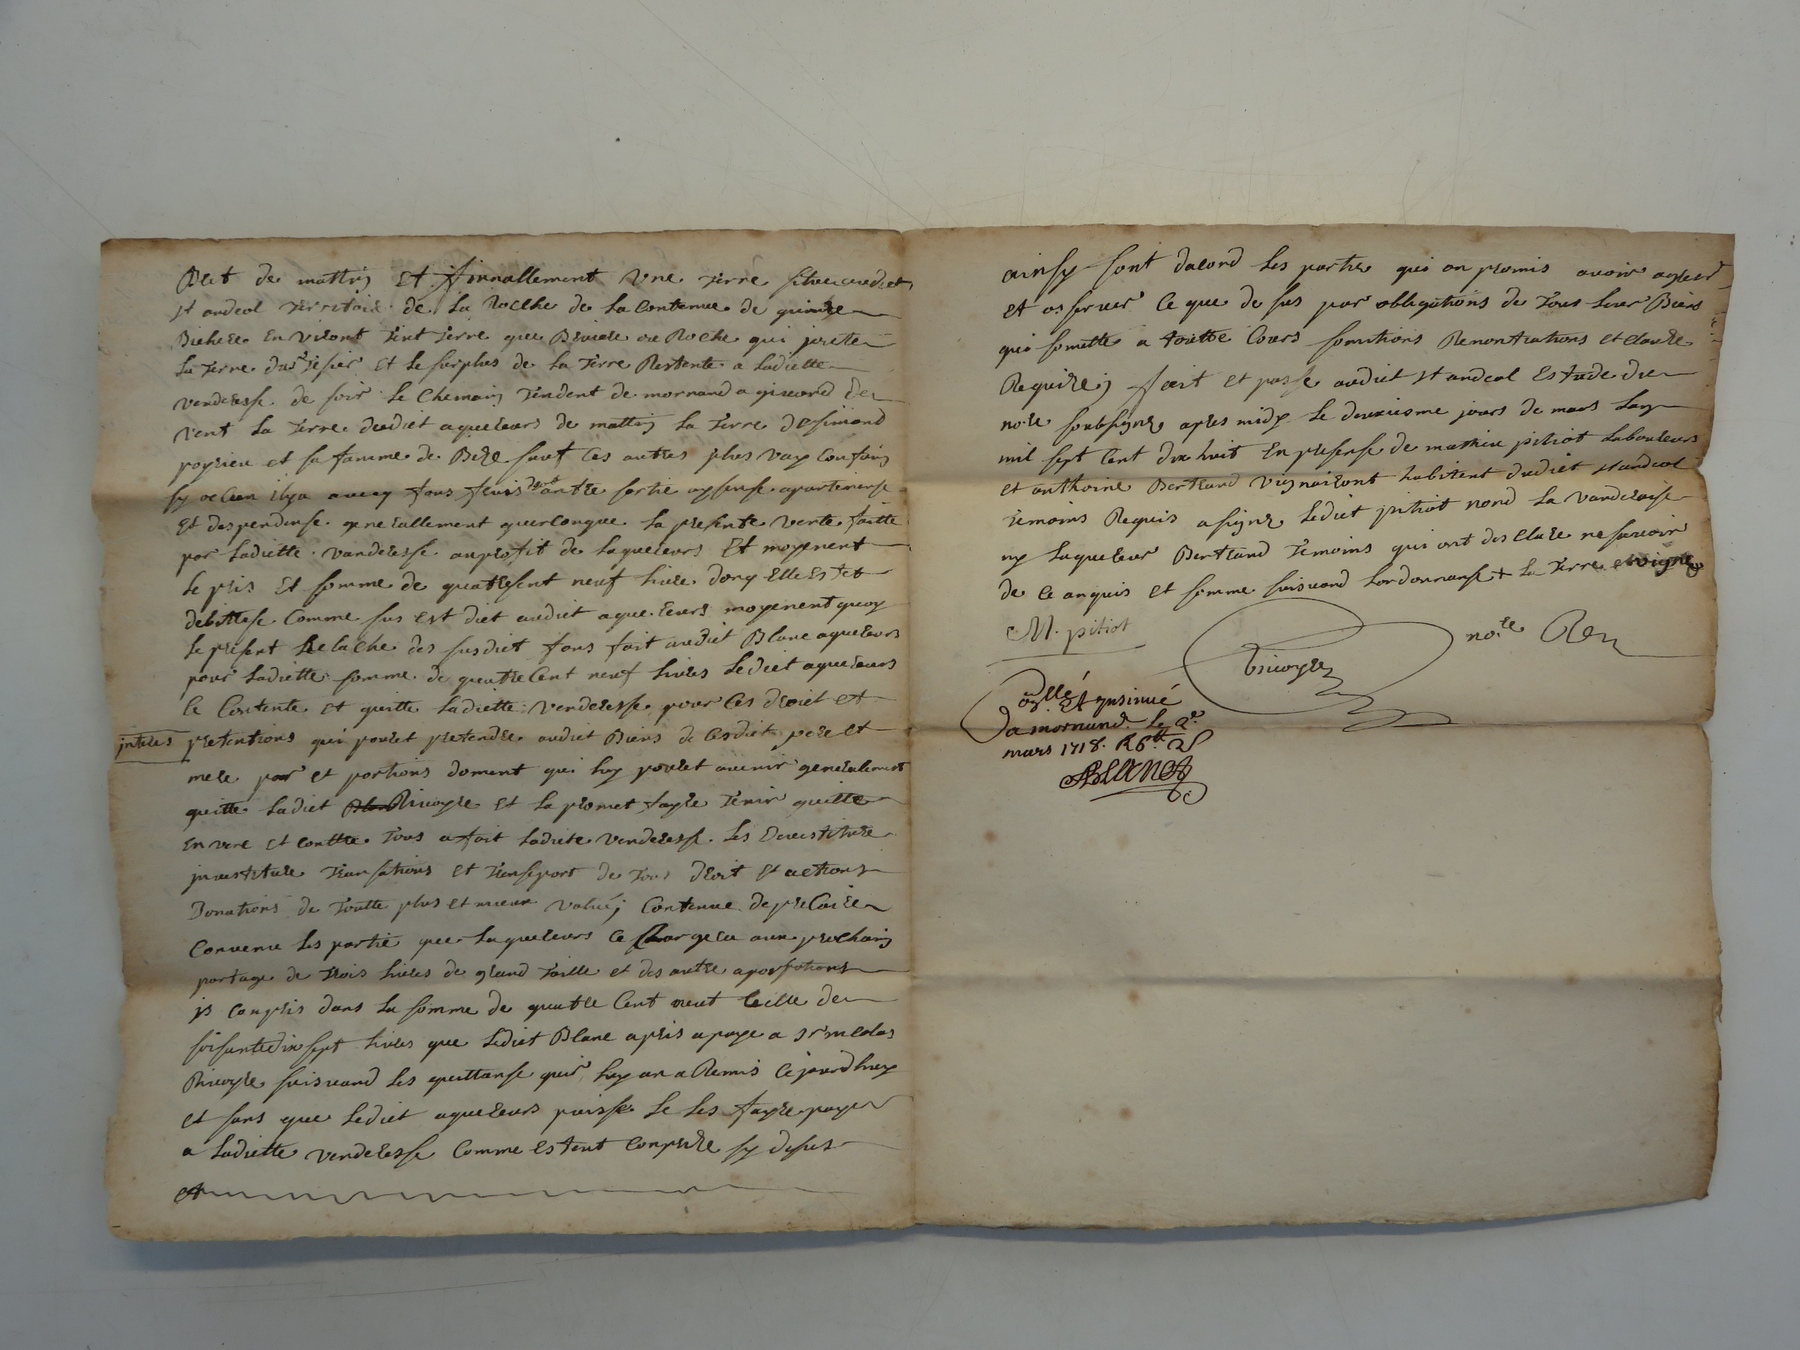 de mattin Et finnallement Une terre situee audiet
st andeol territoire de La Roche de La Contenue de quinze
Bichere Environt tent terre que Roche qui jouste
La terre du Et Le surplus de La terre Restente a Ladiette
venderesse de soir Le Chemain tendent de mornand a givord de
vent La terre dudiet aquereurs de mattin La terre de simond
poyrieu et sa famme de Bize sauf Ces autres plus vray Confins
sy ocun ilya avecq tous leurs antre sortie apartenense
Et despendense generallement quelconque La presente vente faitte
par Ladiette vanderesse au profit de Laquereurs Et moyenent
Le pris Et somme de quatresent neuf livre donq Elle Estet
debittrise Comme sus est diet audiet aquereurs moyenent quoy
Le present Relache des susdiet fons fait audiet Blanc aquereurs
pour Ladiette somme de quatre Cent neuf livres Lediet aquereurs
Ce Contente Et quitte Ladiette venderesse pour Ces droiet et
pretentions qui pouret pretendre audiet Biens de Cesdiet pere et
mere par et portions doment qui luy pouret avenir generalement
quitte Ladiet Rivoyre Et La promet fayre tenir quitte
Envere Et contre tous a fait Ladiete venderesse Les
investiture transations Et transport de tous droit Et actions
Donations de toutte plus et mieux valué Contenue de precaire
Convenu Les partie que Laquereurs Ce Chargera aux prochain
partage de trois livres de grand taille et des autre
is Conpris dans La somme de quatre Cent neuf Celle de
soisante dix sept livres que Lediet Blanc apris a paye a sr nicolas
Rivoyre suivand Les quittanse quil luy an a Remis Cejourdhuy
Et sans que Lediet aquereurs puisse Le Les fayre payer
a Ladiette venderesse Comme Estent Conprise sy desus
Et
interes
ainsy sont dacord Les partie qui on promis avoir agreer
Et osserver Ce que de sus par obligations de tous Leur Biens
qui somette a toutte Cours somitions Renontiations et clause
Requize fait Et passe audiet st andeol Estude du
no.re soubsigne apres midy Le deuxiesme jours de mars Lan
mil sept Cent dix huit En presense de mathieu pitiot Laboureurs
Et anthoine Bertrand vigneront habitent dudiet st andeol
temoins Requis a signe Lediet pitiot nond La vanderaise
ny Laquereur Bertrand temoins qui ont desClare ne savoir
de Ce anquis Et somme suivand Lordonnanse + La terre et vigne
M. pitiot
no.re
Con.llé Et ynsinué
a mornand Le 2e
mars 1718.
ABLANC